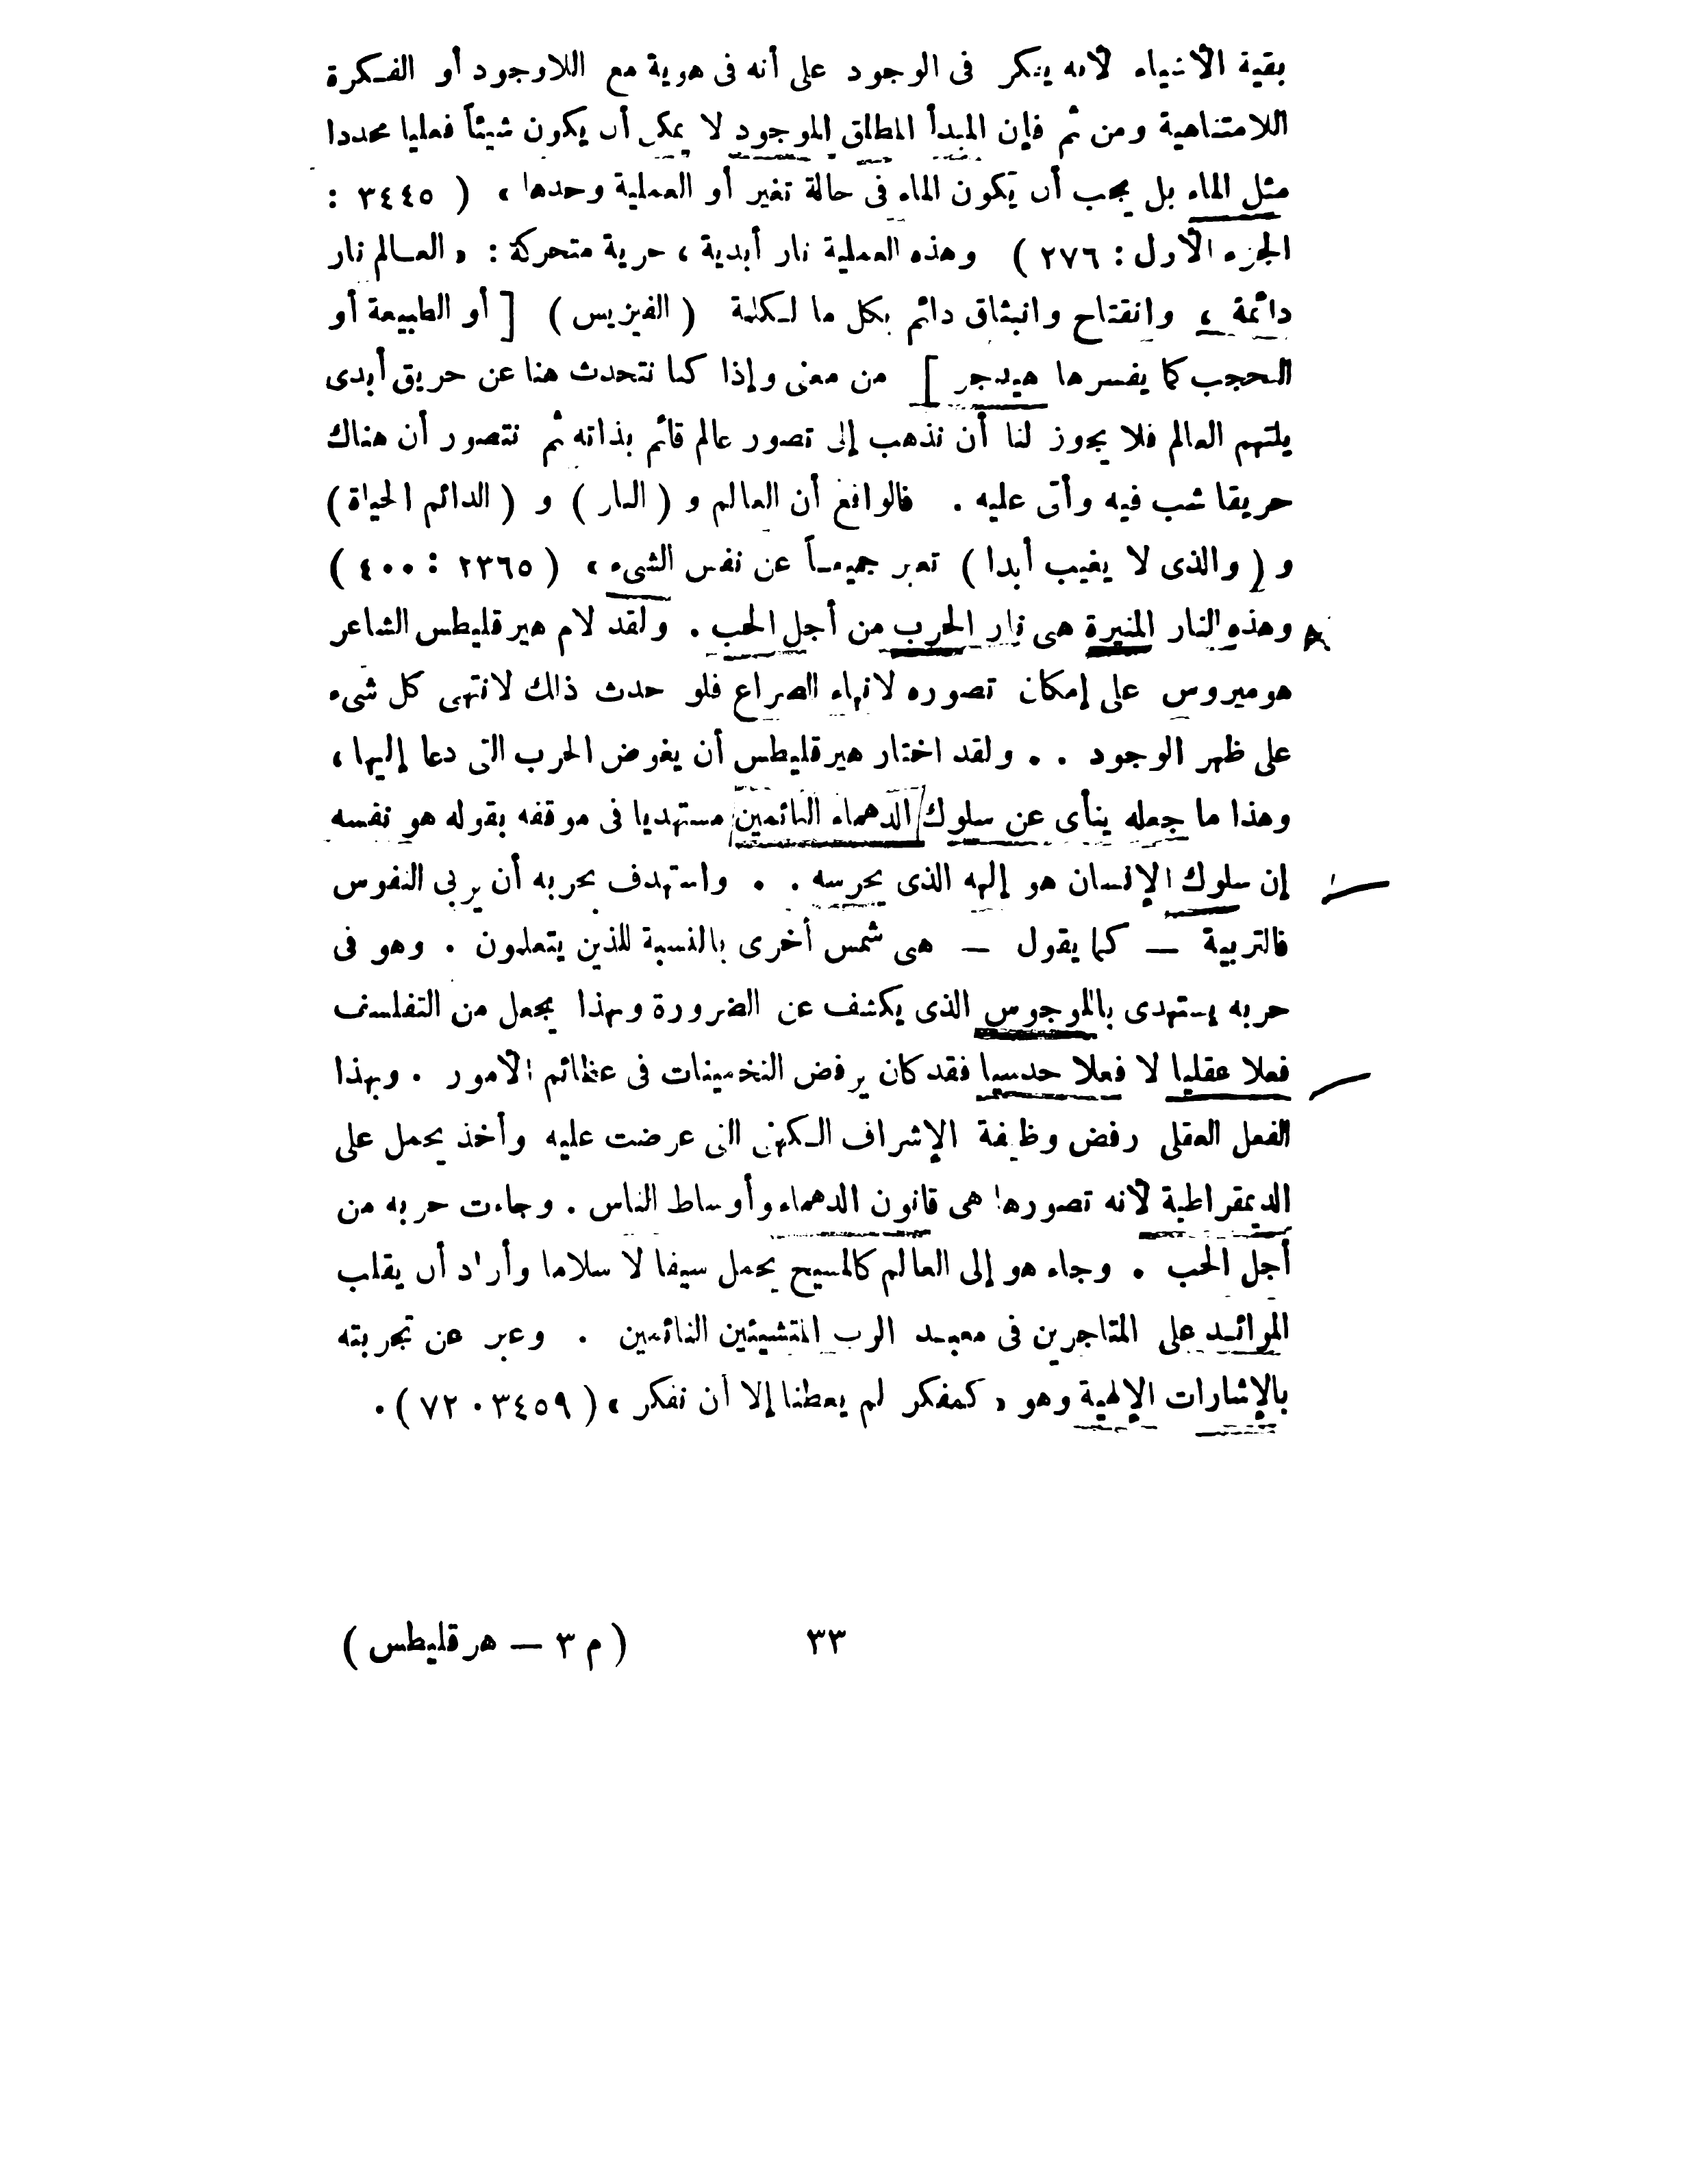 بقية الأشياء لأنه يفكر فى الوجود على أنه فى هوية مع اللاوجود أو الفكرة
اللامتناهية ومن ثم فإن المبدأ المطلق الموجود لا يمكن أن يكون شيئاً فعليا محددا
مثل الماء بل يجب أن يكون الماء فى حالة تغير أو العملية وحدها » ( ٣٤٤٥ :
الجزء الأول : ٢٧٦ ) وهذه العملية نار أبدية ، حرية متحركة : « العالم نار
دائمة ، وانفتاح وانبثاق دائم بكل ما لكلمة ( الفيزيس ) [ أو الطبيعة أو
التحجب كما يفسرها هيدجر ] من معنى وإذا كنا نتحدث هنا عن حريق أبدى
يلتهم العالم فلا يجوز لنا أن نذهب إلى تصور عالم قائم بذاته ثم نتصور أن هناك
حريقا شب فيه وأتى عليه . فالواقع أن العالم و ( النار ) و ( الدائم الحياة )
و ( والذى لا يغيب أبدا ) تعبر جميعاً عن نفس الشىء » ( ٢٣٦٥ : ٤٠٠ )
وهذه النار المنيرة هى نار الحرب من أجل الحب . ولقد لام هيرقليطس الشاعر
هوميروس على إمكان تصوره لانهاء الصراع فلو حدث ذلك لانتهى كل شىء
على ظهر الوجود . . ولقد اختار هيرقليطس أن يخوض الحرب التى دعا إليها ،
وهذا ما جعله ينأى عن سلوك الدهماء النائمين مستهديا فى موقفه بقوله هو نفسه
إن سلوك الإنسان هو إلهه الذى يحرسه . . واستهدف بحربه أن يربى النفوس
فالتربية — كما يقول — هى شمس أخرى بالنسبة للذين يتعلمون . وهو فى
حربه يستهدى باللوجوس الذى يكشف عن الضرورة وبهذا يجعل من التفلسف
فعلا عقليا لا فعلا حدسيا فقد كان يرفض التخمينات فى عظائم الأمور . وبهذا
الفعل العقلى رفض وظيفة الإشراف الكهنى التى عرضت عليه وأخذ يحمل على
الديمقراطية لأنه تصورها هى قانون الدهماء وأوساط الناس . وجاءت حربه من
أجل الحب . وجاء هو إلى العالم كالمسيح يحمل سيفا لا سلاما وأراد أن يقلب
الموائد على المتاجرين فى معبد الرب المتشيئين النائمين . وعبر عن تجربته
بالإشارات الإلهية وهو « كمفكر لم يعطنا إلا أن نفكر » ( ٣٤٥٩ . ٧٢ ) .
٣٣ ( م ٣ — هرقليطس )